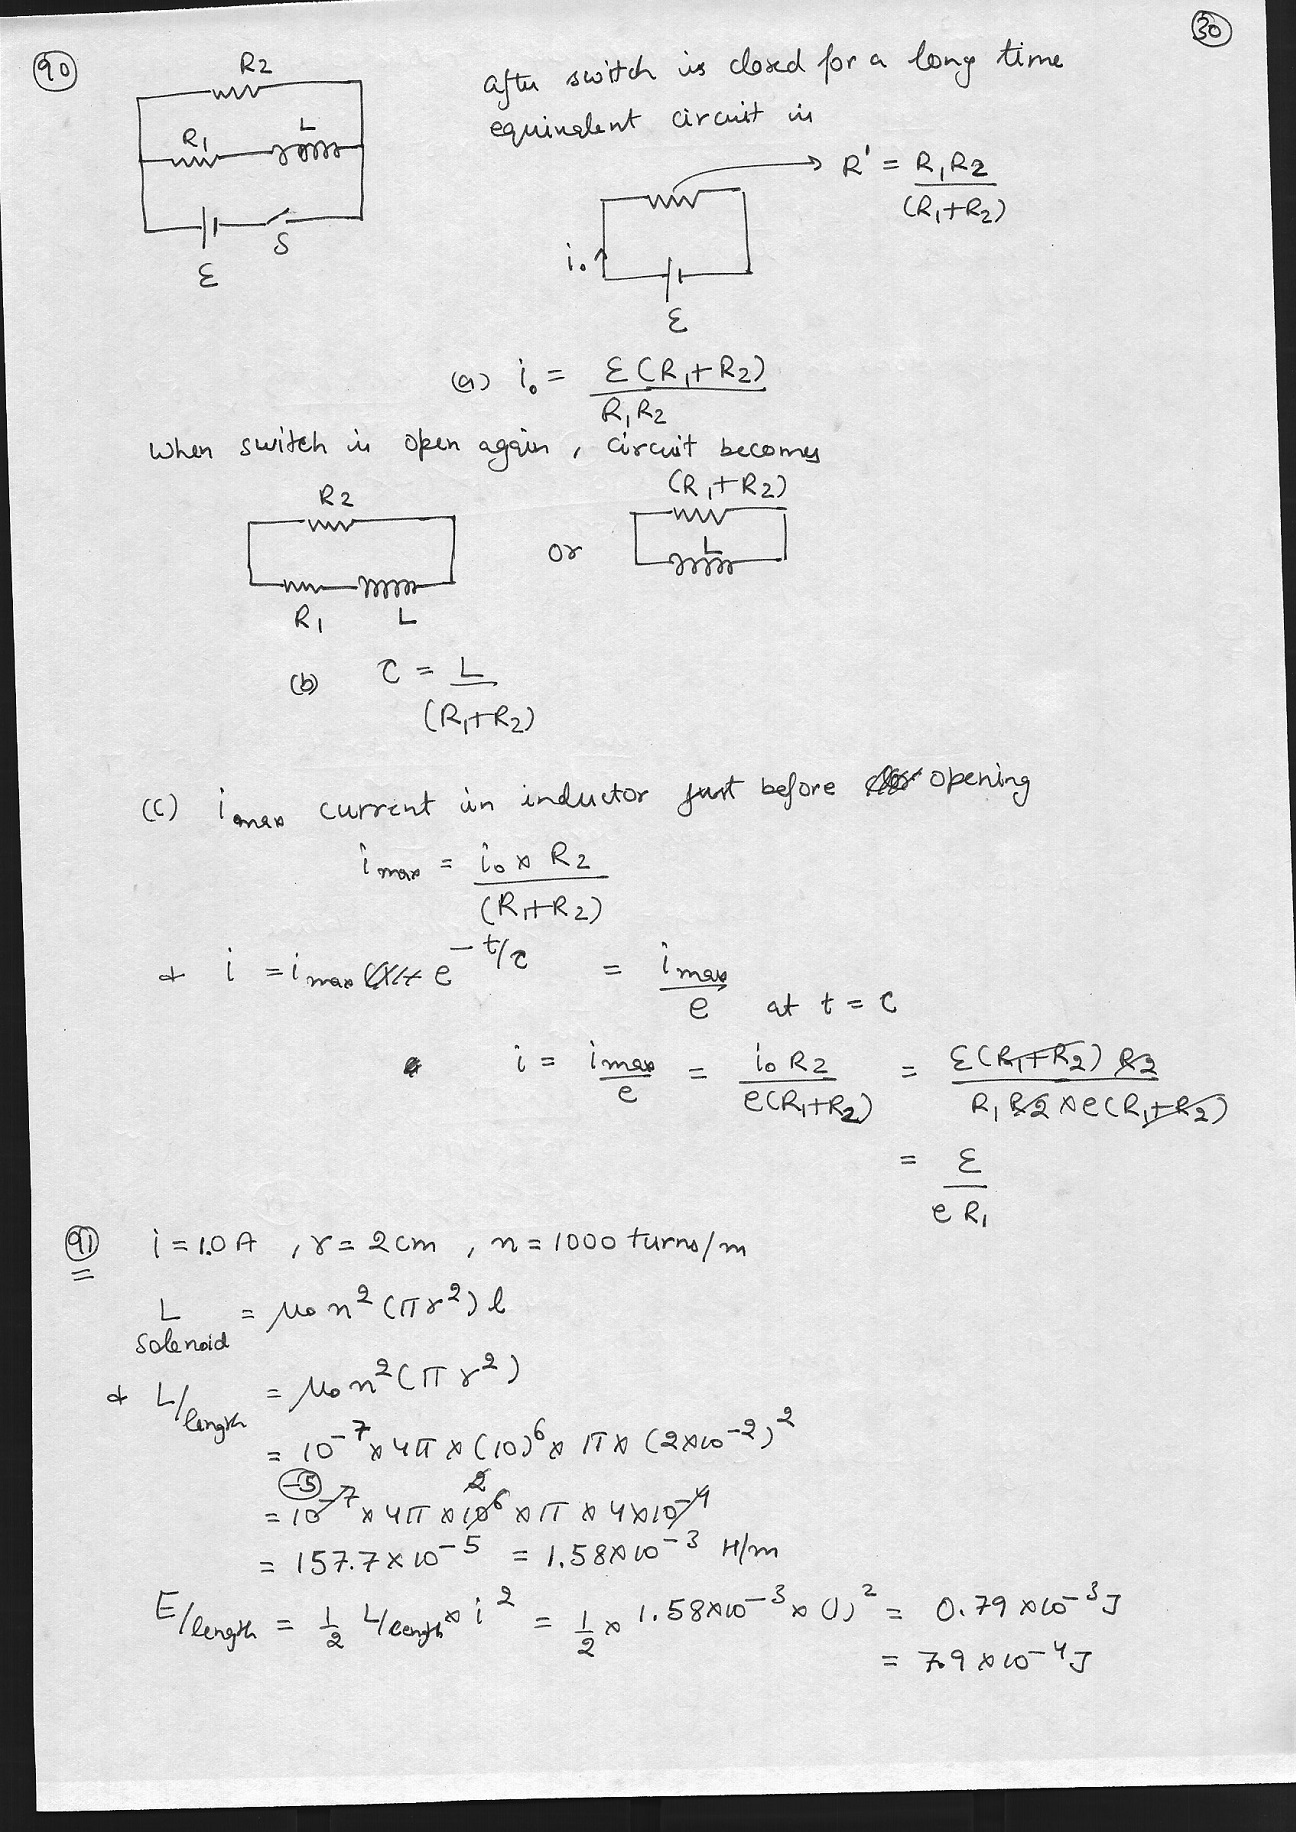 30
90
R2
R1 L
S
ε
after switch is closed for a long time
equivalent circuit is
R' = R1R2
(R1+R2)
i0
ε
(a) i0 = ε(R1+R2)
R1R2
when switch is open again, circuit becomes
R2
R1 L
or
(R1+R2)
L
(b) τ = L
(R1+R2)
(c) imax current in inductor just before opening
imax = i0 × R2
(R1+R2)
& i = imax e^-t/τ = imax
e at t = τ
i = imax = i0 R2 = ε(R1+R2) R2
e e(R1+R2) R1 R2 × e(R1+R2)
= ε
e R1
91 i = 1.0 A , r = 2 cm , n = 1000 turns/m
L = μ0 n² (πr²) l
solenoid
& L/length = μ0 n² (πr²)
= 10^-7 × 4π × (10)^6 × π × (2×10^-2)²
-5 2
= 10^-7 × 4π × 10^6 × π × 4×10^-4
= 157.7 × 10^-5 = 1.58×10^-3 H/m
E/length = 1/2 L/length × i² = 1/2 × 1.58×10^-3 × (1)² = 0.79 × 10^-3 J
= 7.9 × 10^-4 J